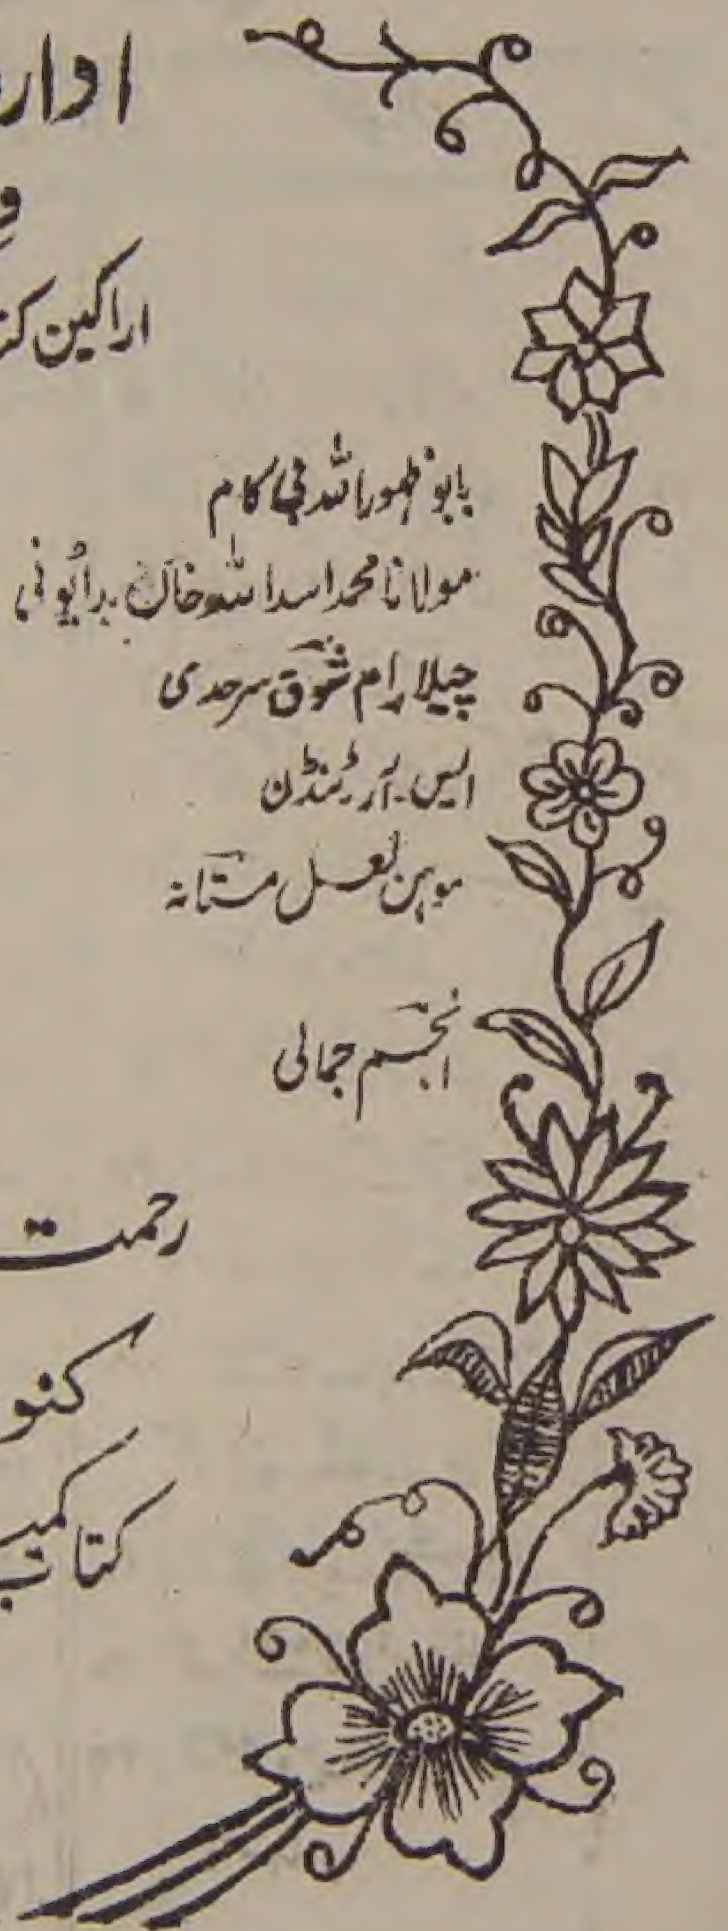 ادار
و
اراکین کت
بابو ظہور اللہ بی کام
مولانا محمد اسد اللہ خان بدایونی
چیلا رام شوق سرحدی
ایس۔ آر ٹنڈن
موہن لعل مستانہ
انجم جمالی
رحمت
کنو
کتاب کمیٹ